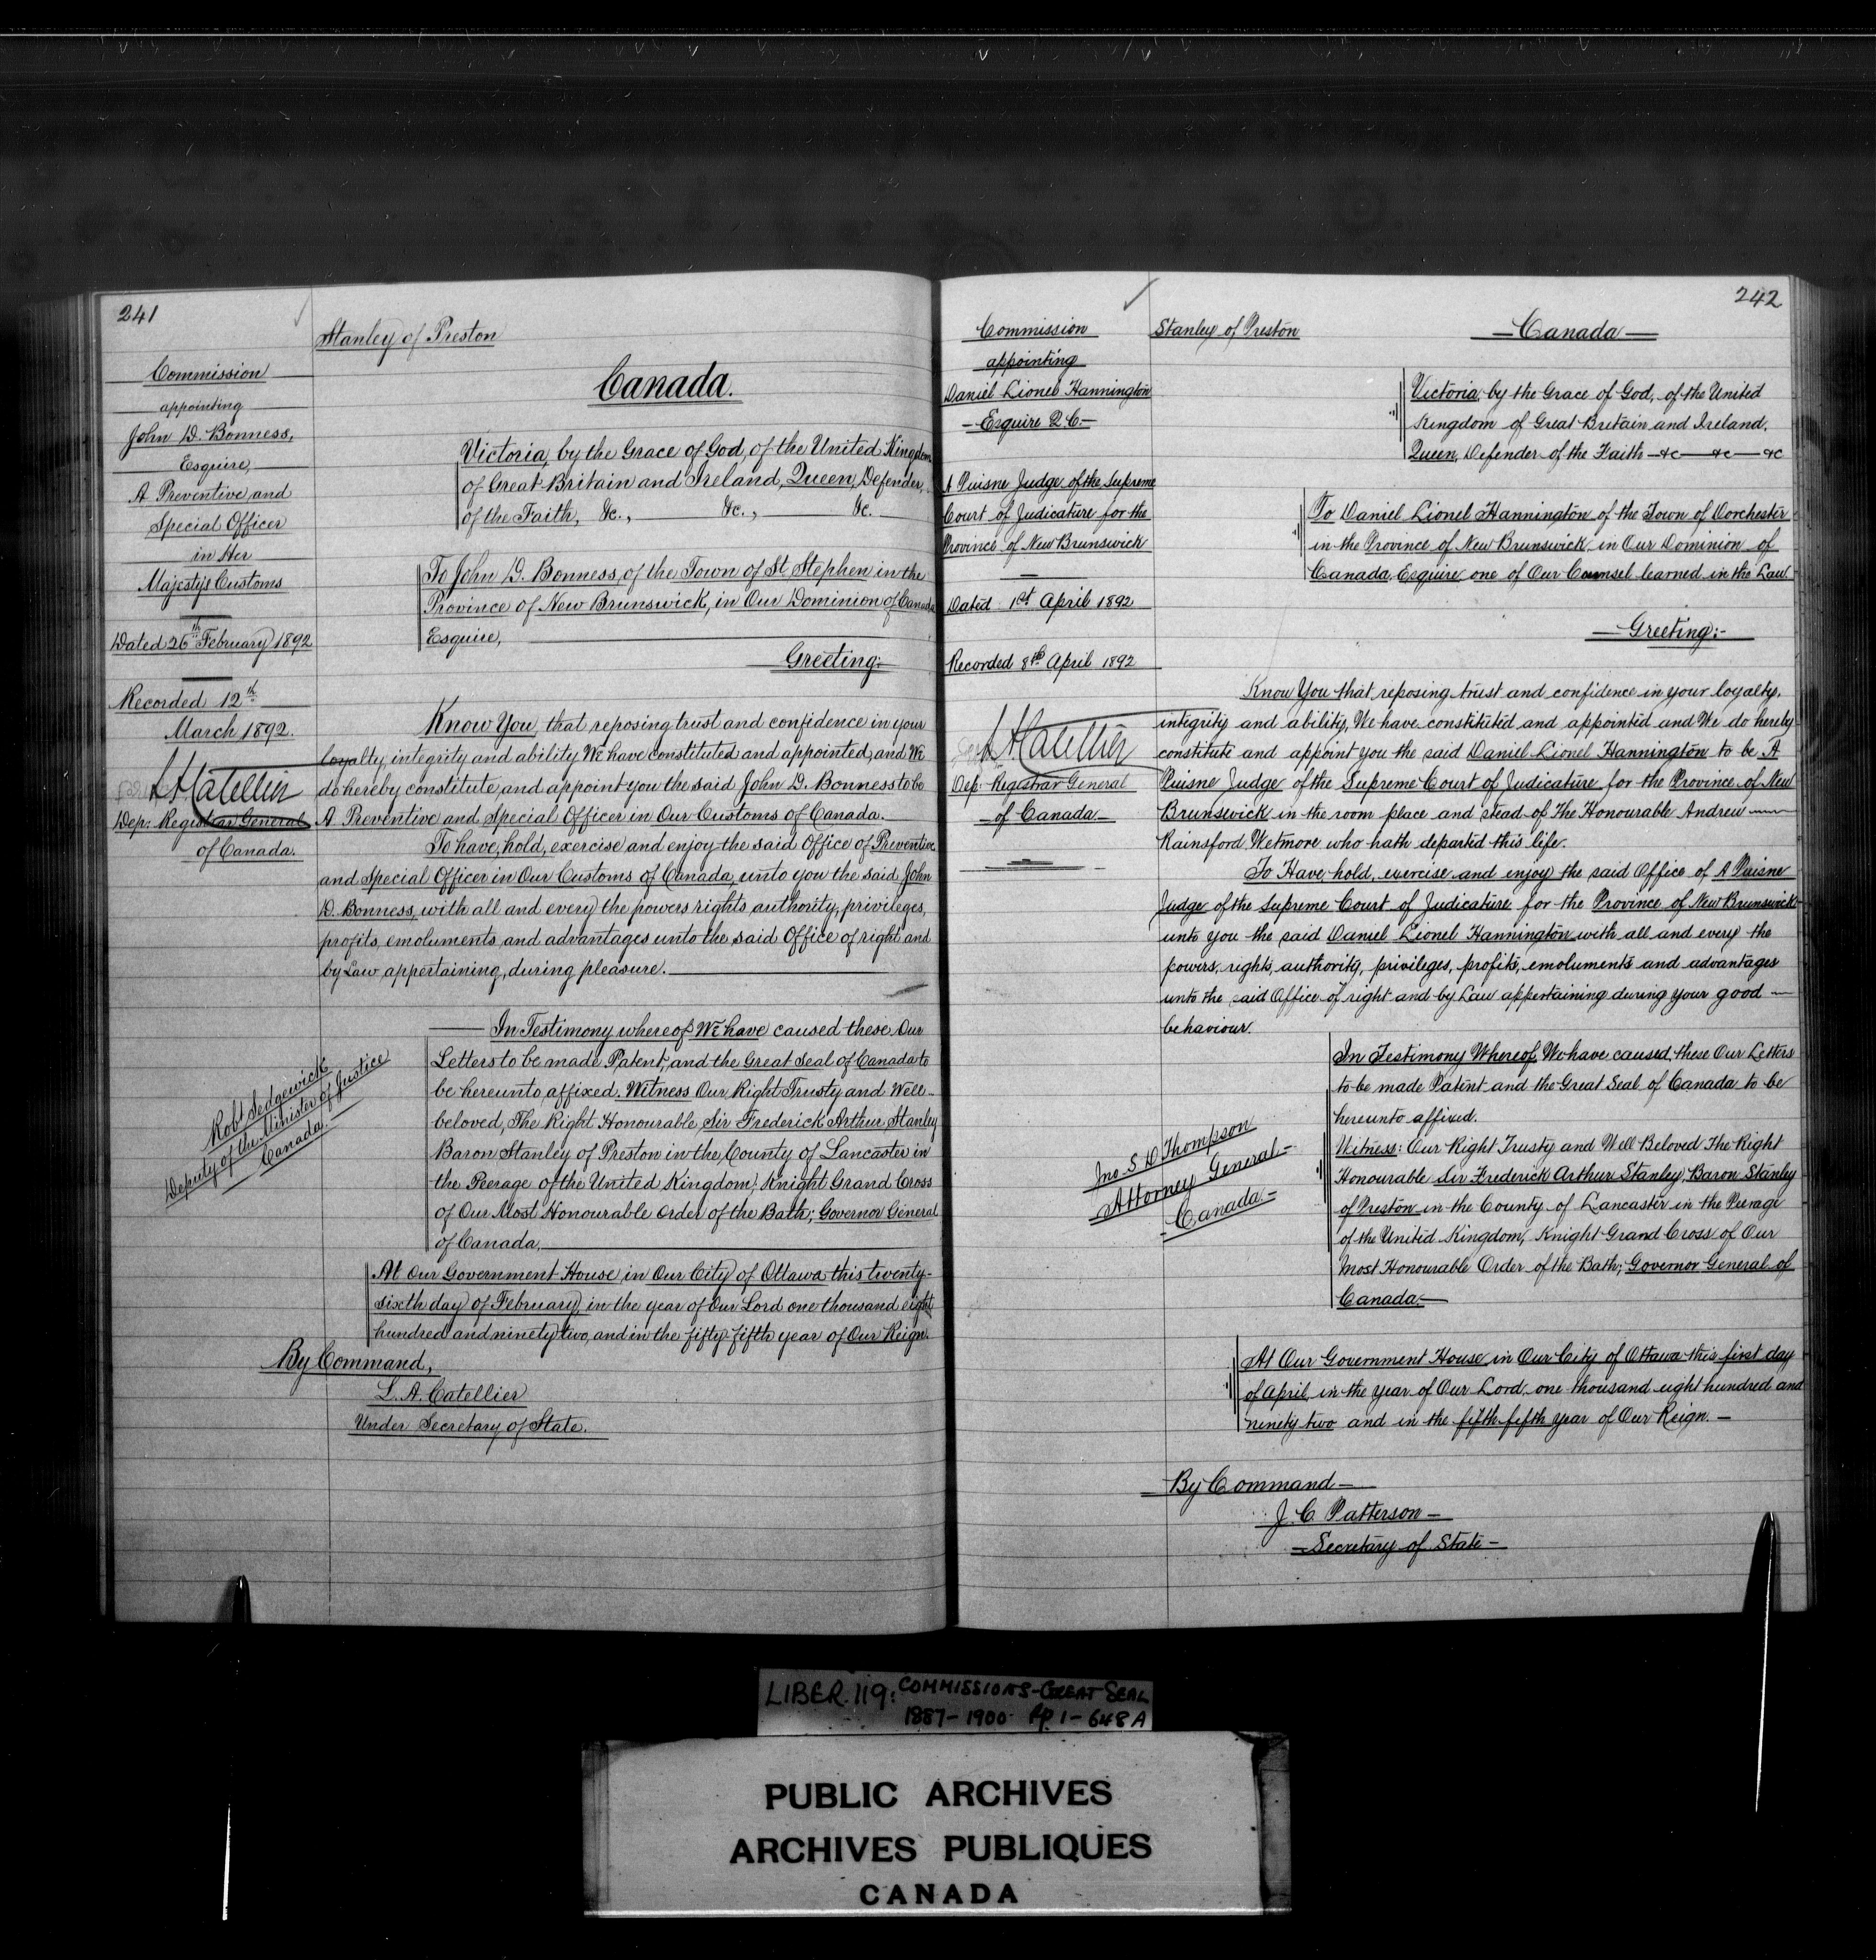 241
Stanley of Preston
Commission
appointing
John D. Bonness,
Esquire,
A Preventive and
Special Officer
in Her
Majestys Customs
Dated 26th February 1892
Recorded 12th
March 1892.
L A Catellier
Dep: Registrar General
of Canada.
Canada.
Victoria, by the Grace of God, of the United Kingdom
of Great Britain and Ireland, Queen, Defender,
of the Faith, &c., &c., &c.
To John D. Bonness, of the Town of St Stephen in the
Province of New Brunswick, in Our Dominion of Canada
Esquire,
Greeting:
Know You, that reposing trust and confidence in your
loyalty, integrity and ability We have constituted and appointed, and We
do hereby constitute, and appoint you the said John D. Bonness to be
A Preventive and Special Officer in Our Customs of Canada.
To have, hold, exercise and enjoy the said Office of Preventive
and Special Officer in Our Customs of Canada, unto you the said John
D. Bonness, with all and every the powers rights, authority, privileges,
profits, emoluments and advantages unto the said Office of right and
by Law appertaining, during pleasure.
In Testimony whereof We have caused these Our
Letters to be made Patent, and the Great Seal of Canada to
be hereunto affixed. Witness Our Right Trusty and Well-
beloved, The Right Honourable, Sir Frederick Arthur Stanley
Baron Stanley of Preston in the County of Lancaster in
the Peerage of the United Kingdom; Knight Grand Cross
of Our Most Honourable Order of the Bath; Governor General
of Canada,
Robt Sedgewick
Deputy of the Minister of Justice
Canada.
At Our Government House in Our City of Ottawa this twenty-
sixth day of February, in the year of Our Lord one thousand eight
hundred and ninety two, and in the fifty-fifth year of Our Reign.
By Command,
L. A. Catellier
Under Secretary of State.
242
Commission
appointing
Daniel Lionel Hannington
Esquire Q.C.
A Puisne Judge of the Supreme
Court of Judicature for the
Province of New Brunswick
Dated 1st April 1892
Recorded 8th April 1892
L A Catellier
Dep. Registrar General
of Canada
Stanley of Preston
Canada
Victoria, by the Grace of God, of the United
Kingdom of Great Britain and Ireland,
Queen, Defender of the Faith &c &c &c
To Daniel Lionel Hannington of the Town of Dorchester
in the Province of New Brunswick, in Our Dominion of
Canada, Esquire one of Our Counsel learned in the Law.
Greeting:-
Know You that reposing trust and confidence in your loyalty,
integrity and ability, We have constituted and appointed and We do hereby
constitute and appoint you the said Daniel Lionel Hannington to be A
Puisne Judge of the Supreme Court of Judicature for the Province of New
Brunswick in the room place and stead of The Honourable Andrew
Rainsford Wetmore who hath departed this life.
To Have hold, exercise and enjoy the said Office of A Puisne
Judge of the Supreme Court of Judicature for the Province of New Brunswick
unto you the said Daniel Lionel Hannington with all and every the
powers, rights, authority, privileges, profits, emoluments and advantages
unto the said Office of right and by Law appertaining during your good
behaviour.
In Testimony Whereof, We have caused these Our Letters
to be made Patent and the Great Seal of Canada to be
hereunto affixed.
Witness: Our Right Trusty and Well Beloved The Right
Honourable Sir Frederick Arthur Stanley, Baron Stanley
of Preston in the County of Lancaster in the Peerage
of the United Kingdom, Knight Grand Cross of Our
Most Honourable Order of the Bath; Governor General of
Canada.
Jno. S. D. Thompson
Attorney General
Canada
At Our Government House in Our City of Ottawa this first day
of April, in the year of Our Lord, one thousand eight hundred and
ninety two and in the fifth fifth year of Our Reign.
By Command
J. C. Patterson
Secretary of State
LIBER. 119: COMMISSIONS-GREAT SEAL
1887-1900 Pp. 1-648A
PUBLIC ARCHIVES
ARCHIVES PUBLIQUES
CANADA